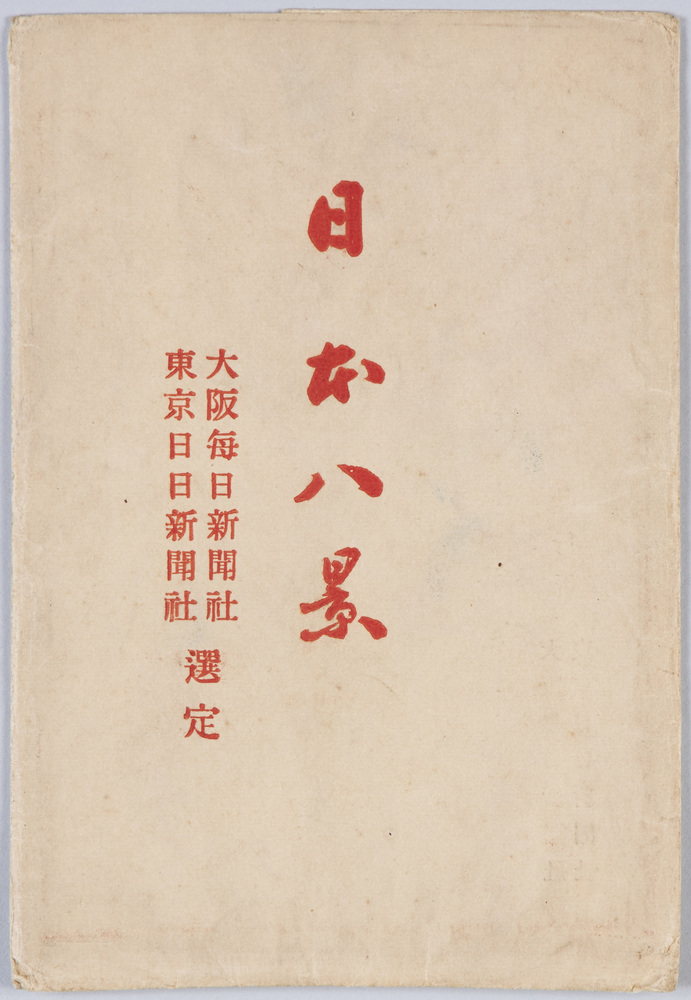 日本八景
大阪毎日新聞社
東京日日新聞社
選定